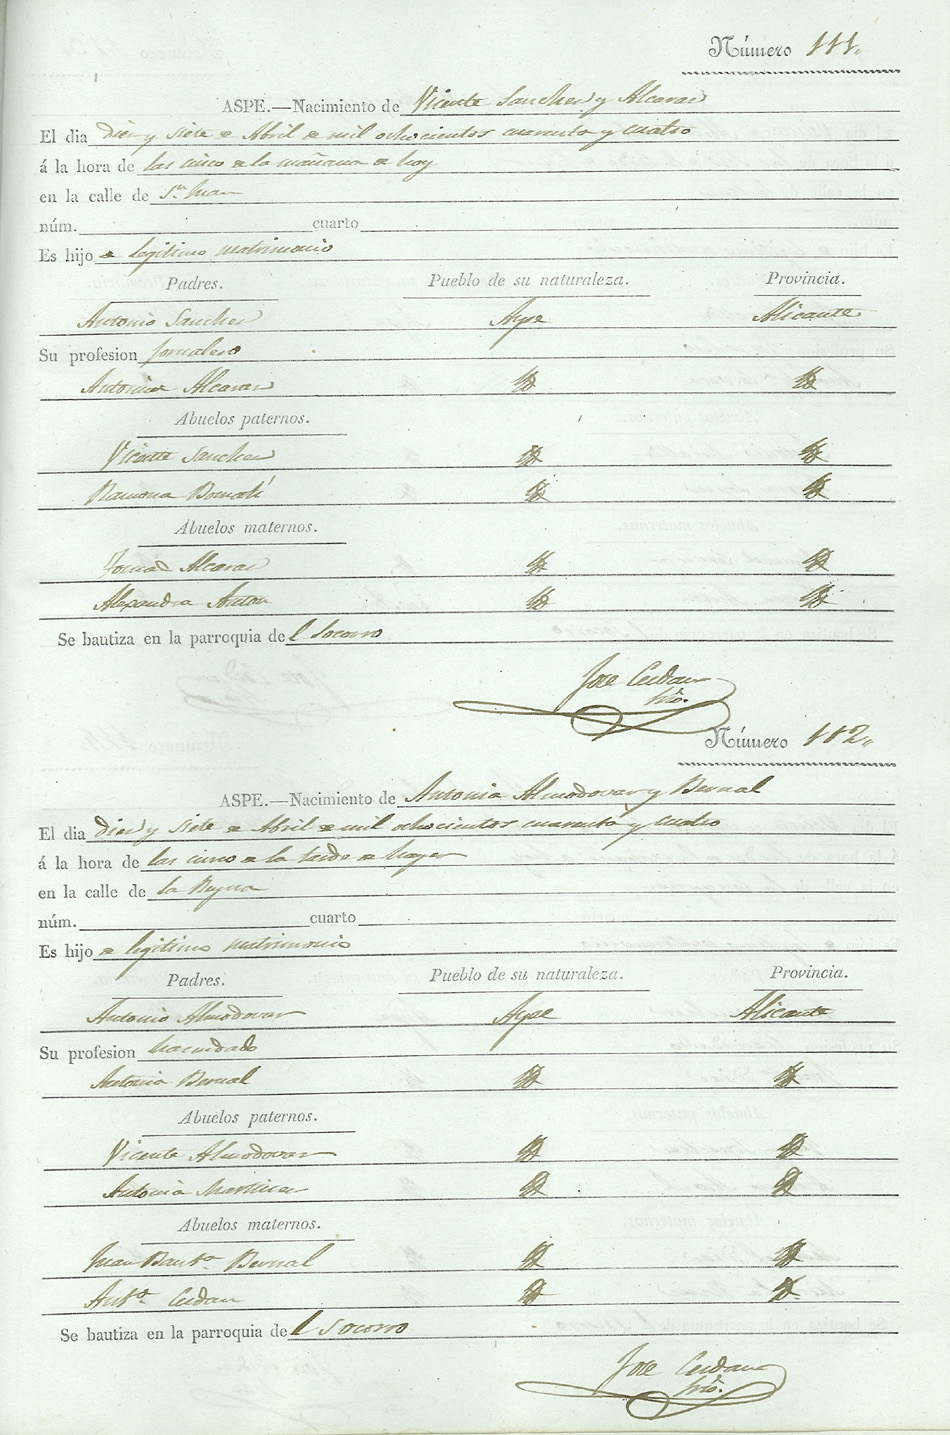 Número 111.
ASPE.—Nacimiento de Vicente Sanchez y Alcaraz
El dia Diez y Siete de Abril de mil ochocientos cuarenta y cuatro
á la hora de las cinco de la mañana de hoy
en la calle de Sn. Juan
núm. cuarto
Es hijo de legitimo matrimonio
Padres. Pueblo de su naturaleza. Provincia.
Antonio Sanchez Aspe Alicante
Su profesion Jornalero
Antonia Alcaraz Yd Yd
Abuelos paternos.
Vicente Sanchez Yd Yd
Ramona Yd Yd
Abuelos maternos.
Tomas Alcaraz Yd Yd
Alexandra Anton Yd Yd
Se bautiza en la parroquia del Socorro
Jose Cerdan
Srio.
Número 112.
ASPE.—Nacimiento de Antonia Almodovar y Bernal
El dia Diez y Siete de Abril de mil ochocientos cuarenta y cuatro
á la hora de las cinco de la tarde de hayer
en la calle de la Reyna
núm. cuarto
Es hijo de legitimo matrimonio
Padres. Pueblo de su naturaleza. Provincia.
Antonio Almodovar Aspe Alicante
Su profesion hacendado
Antonia Bernal Yd Yd
Abuelos paternos.
Vicente Almodovar Yd Yd
Antonia Martinez Yd Yd
Abuelos maternos.
Juan Bauta. Bernal Yd Yd
Anta. Cerdan Yd Yd
Se bautiza en la parroquia del Socorro
Jose Cerdan
Srio.